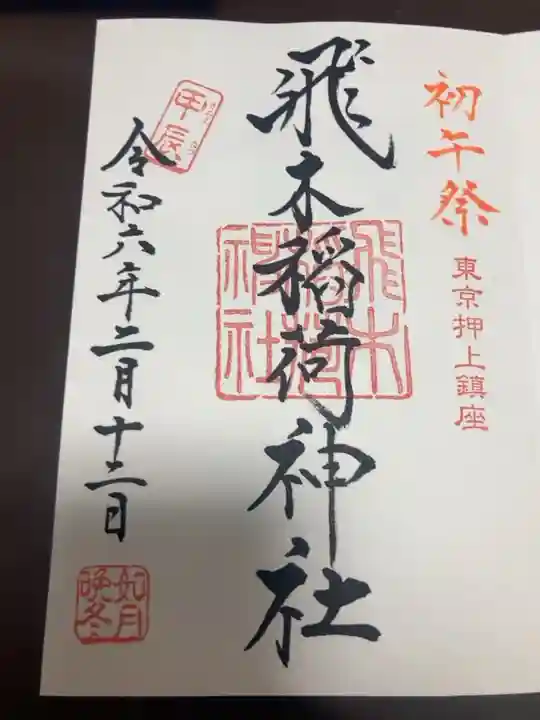 初午祭
東京押上鎮座
飛木稲荷神社
飛木稲荷神社
甲辰
令和六年二月十二日
如月
晩冬